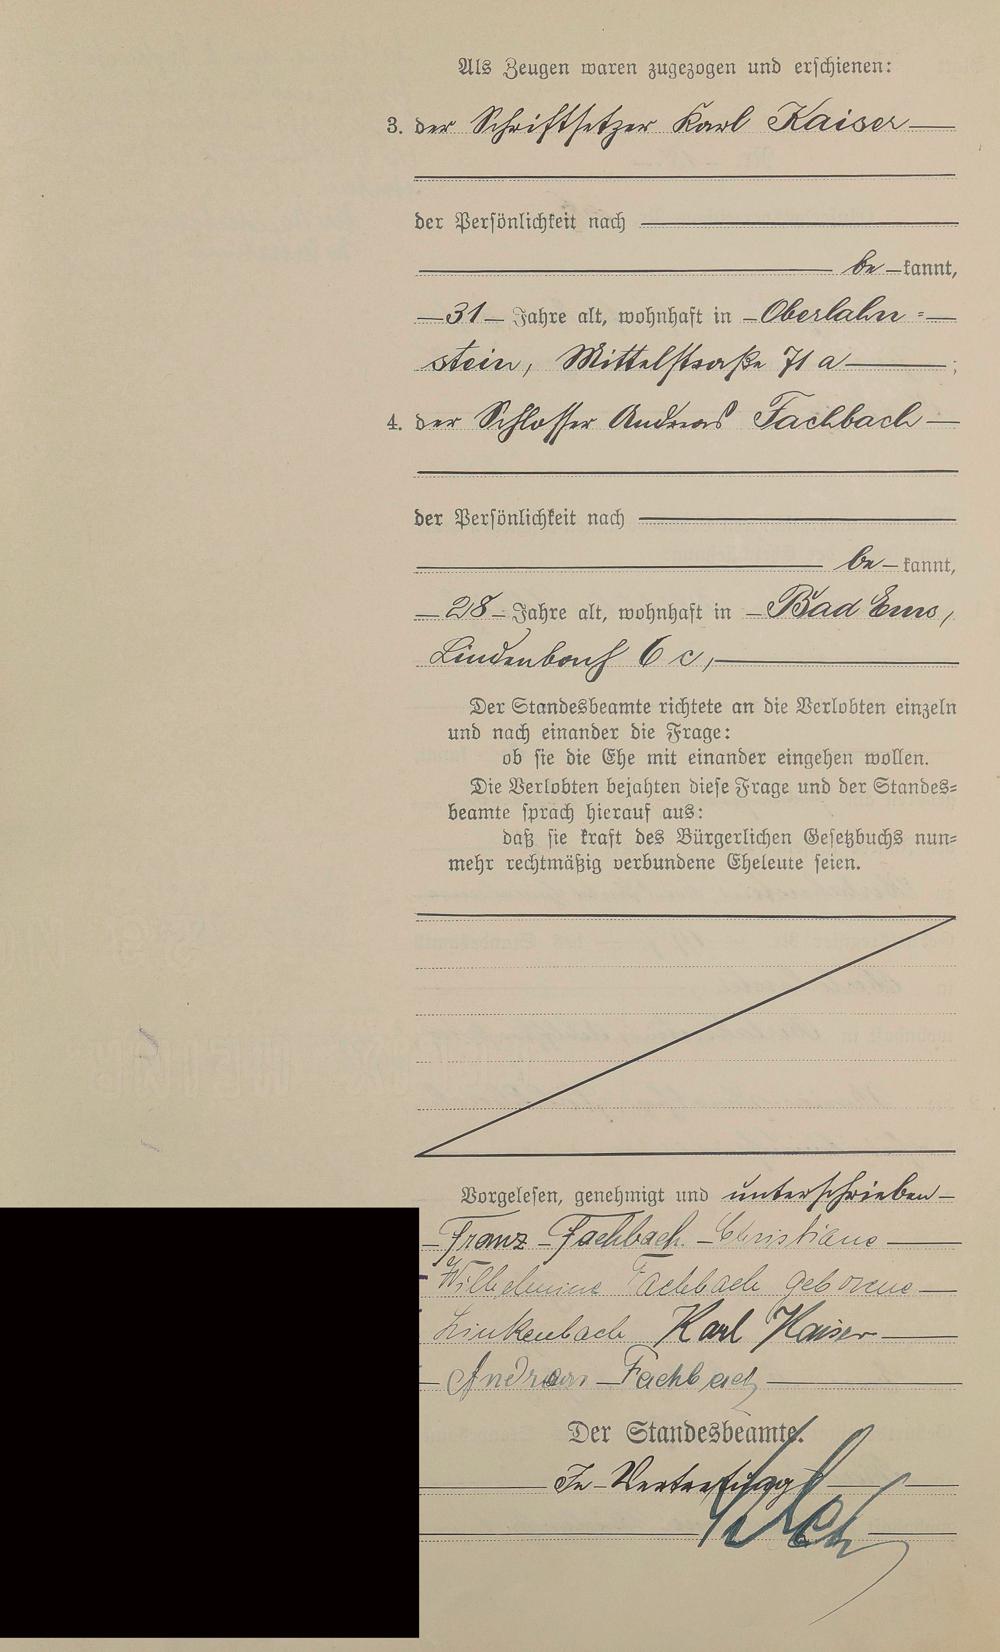 Als Zeugen waren zugezogen und erschienen:
3. der Schriftsetzer Karl Kaiser
der Persönlichkeit nach
be kannt,
31 Jahre alt, wohnhaft in Oberlahn=
stein, Mittelstraße 71 a ;
4. der Schlosser Andreas Fachbach
der Persönlichkeit nach
be kannt,
28 Jahre alt, wohnhaft in Bad Ems,
Lindenbach 6 c,
Der Standesbeamte richtete an die Verlobten einzeln
und nach einander die Frage:
ob sie die Ehe mit einander eingehen wollen.
Die Verlobten bejahten diese Frage und der Standes=
beamte sprach hierauf aus:
daß sie kraft des Bürgerlichen Gesetzbuchs nun=
mehr rechtmäßig verbundene Eheleute seien.
Vorgelesen, genehmigt und unterschrieben
Franz Fachbach. Christiane
Wilhelmine Fachbach geborene
Linkenbach Karl Kaiser
Andreas Fachbach
Der Standesbeamte.
In Vertretung